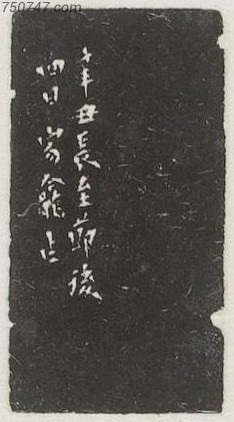 750747.com
辛丑長至節後
四日龕